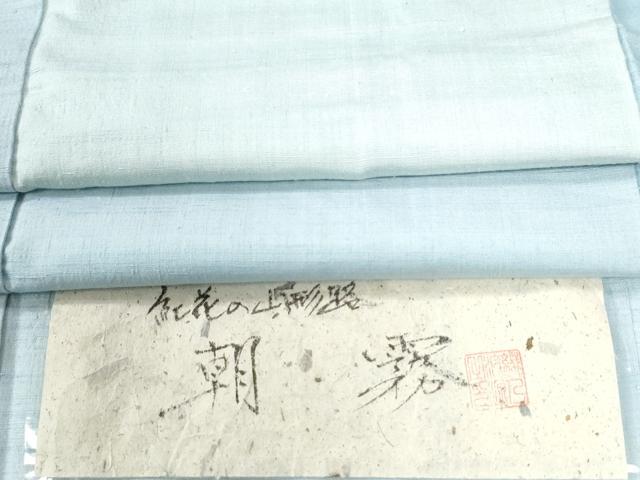 紅花の山形路
朝霧